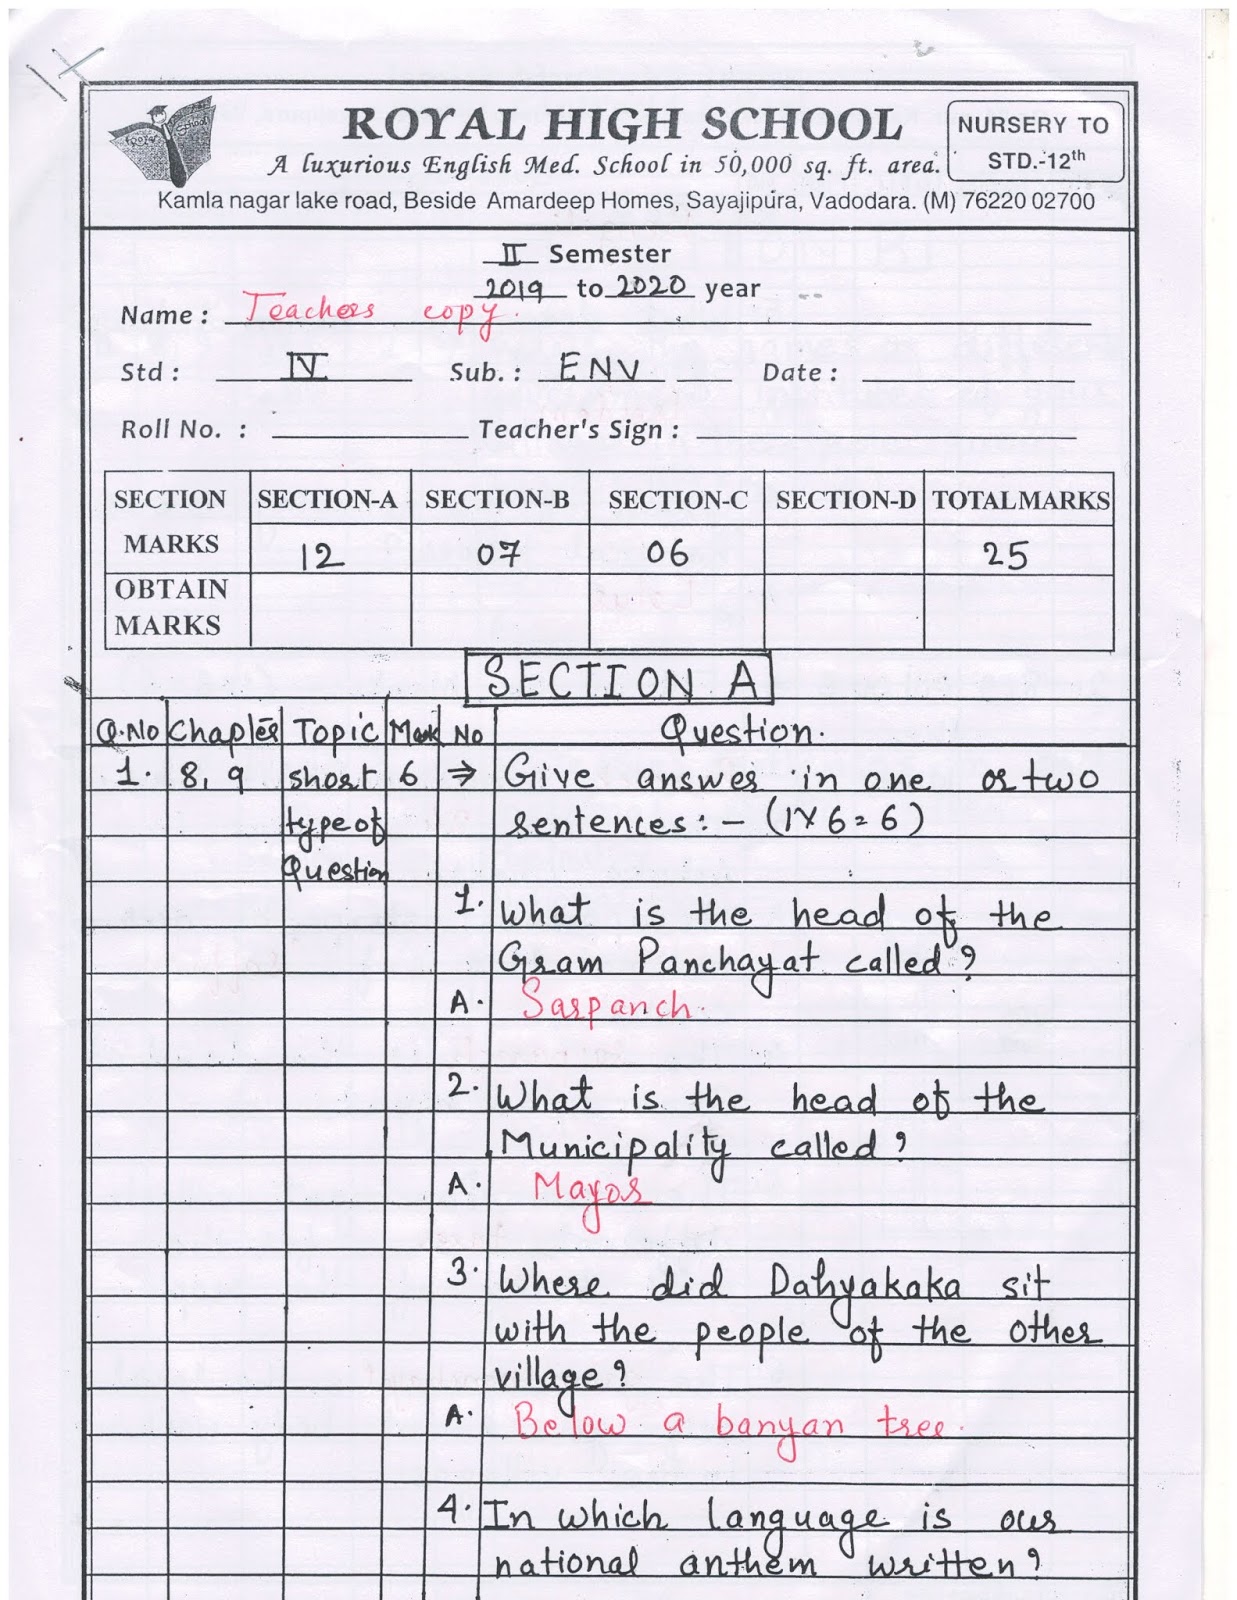 ROYAL HIGH SCHOOL
A luxurious English Med. School in 50,000 sq. ft. area.
NURSERY TO
STD.-12th
Kamla nagar lake road, Beside Amardeep Homes, Sayajipura, Vadodara. (M) 76220 02700
II Semester
2019 to 2020 year
Name : Teachers copy.
Std : IV Sub. : ENV Date :
Roll No. : Teacher's Sign :
SECTION SECTION-A SECTION-B SECTION-C SECTION-D TOTALMARKS
MARKS 12 07 06 25
OBTAIN
MARKS
SECTION A
Q.No Chapter Topic Mark No Question.
1. 8, 9 short 6 ⇒ Give answer in one or two
type of sentences : - (1×6=6)
Question
1. What is the head of the
Gram Panchayat called?
A. Sarpanch.
2. What is the head of the
Municipality called?
A. Mayor
3. Where did Dahyakaka sit
with the people of the other
village?
A. Below a banyan tree.
4. In which language is our
national anthem written?